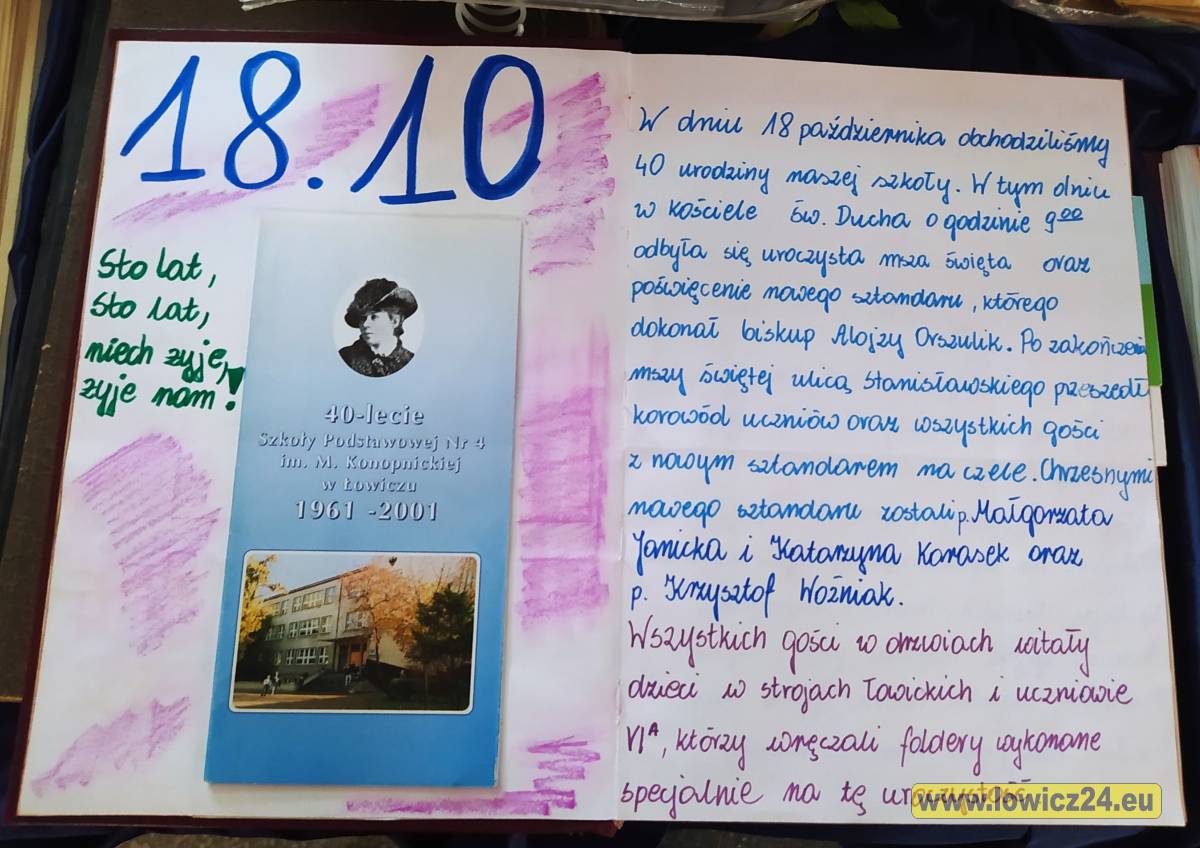 18.10
Sto lat,
sto lat,
niech żyje,
żyje nam!
40-lecie
Szkoły Podstawowej Nr 4
im. M. Konopnickiej
w Łowiczu
1961 -2001
W dniu 18 października obchodziliśmy
40 urodziny naszej szkoły. W tym dniu
w kościele św. Ducha o godzinie 9⁰⁰
odbyła się uroczysta msza święta oraz
poświęcenie nowego sztandaru, którego
dokonał biskup Alojzy Orszulik. Po zakończeniu
mszy świętej ulicą Stanisławskiego przeszedł
korowód uczniów oraz wszystkich gości
z nowym sztandarem na czele. Chrzesnymi
nowego sztandaru zostali p. Małgorzata
Janicka i Katarzyna Karasek oraz
p. Krzysztof Woźniak.
Wszystkich gości w drzwiach witały
dzieci w strojach łowickich i uczniowie
VIᴬ, którzy wręczali foldery wykonane
specjalnie na tę uroczystość
www.lowicz24.eu